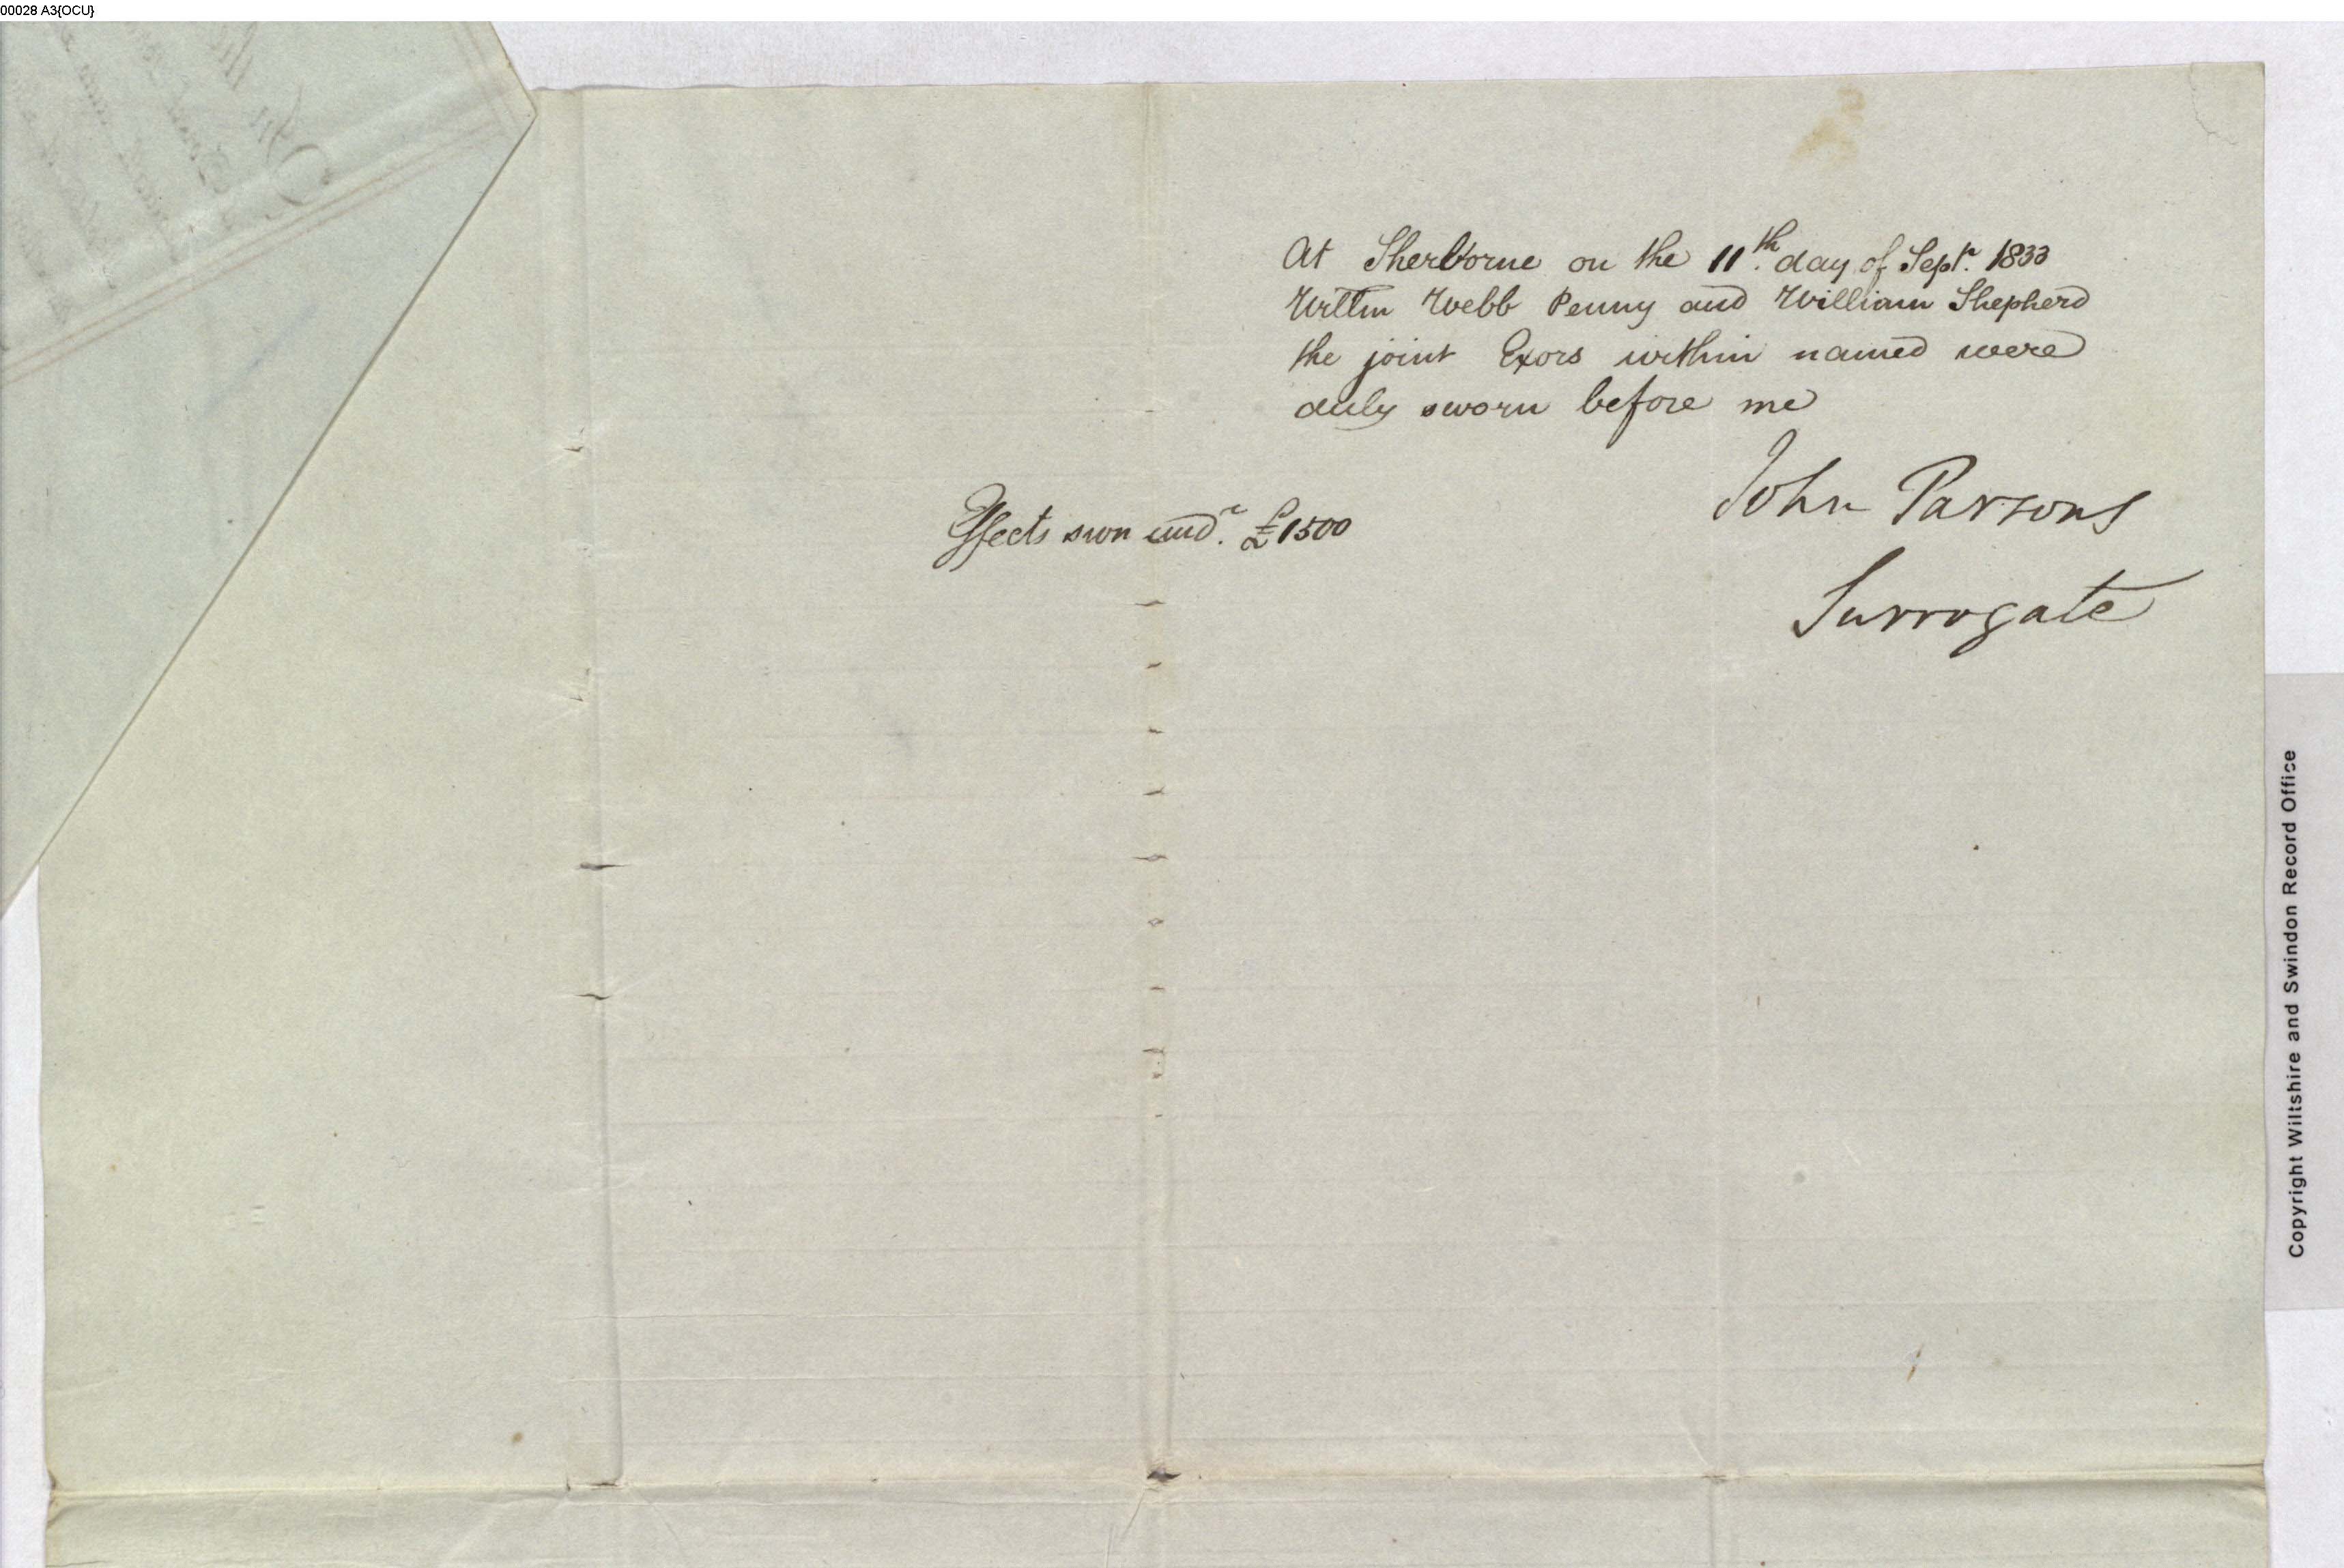 00028 A3{OCU}
At Sherborne on the 11th. day of Septr. 1833
Willm Webb Penny and William Shepherd
the joint Exors within named were
duly sworn before me
John Parsons
Surrogate
Effects swn undr. £1500
Copyright Wiltshire and Swindon Record Office